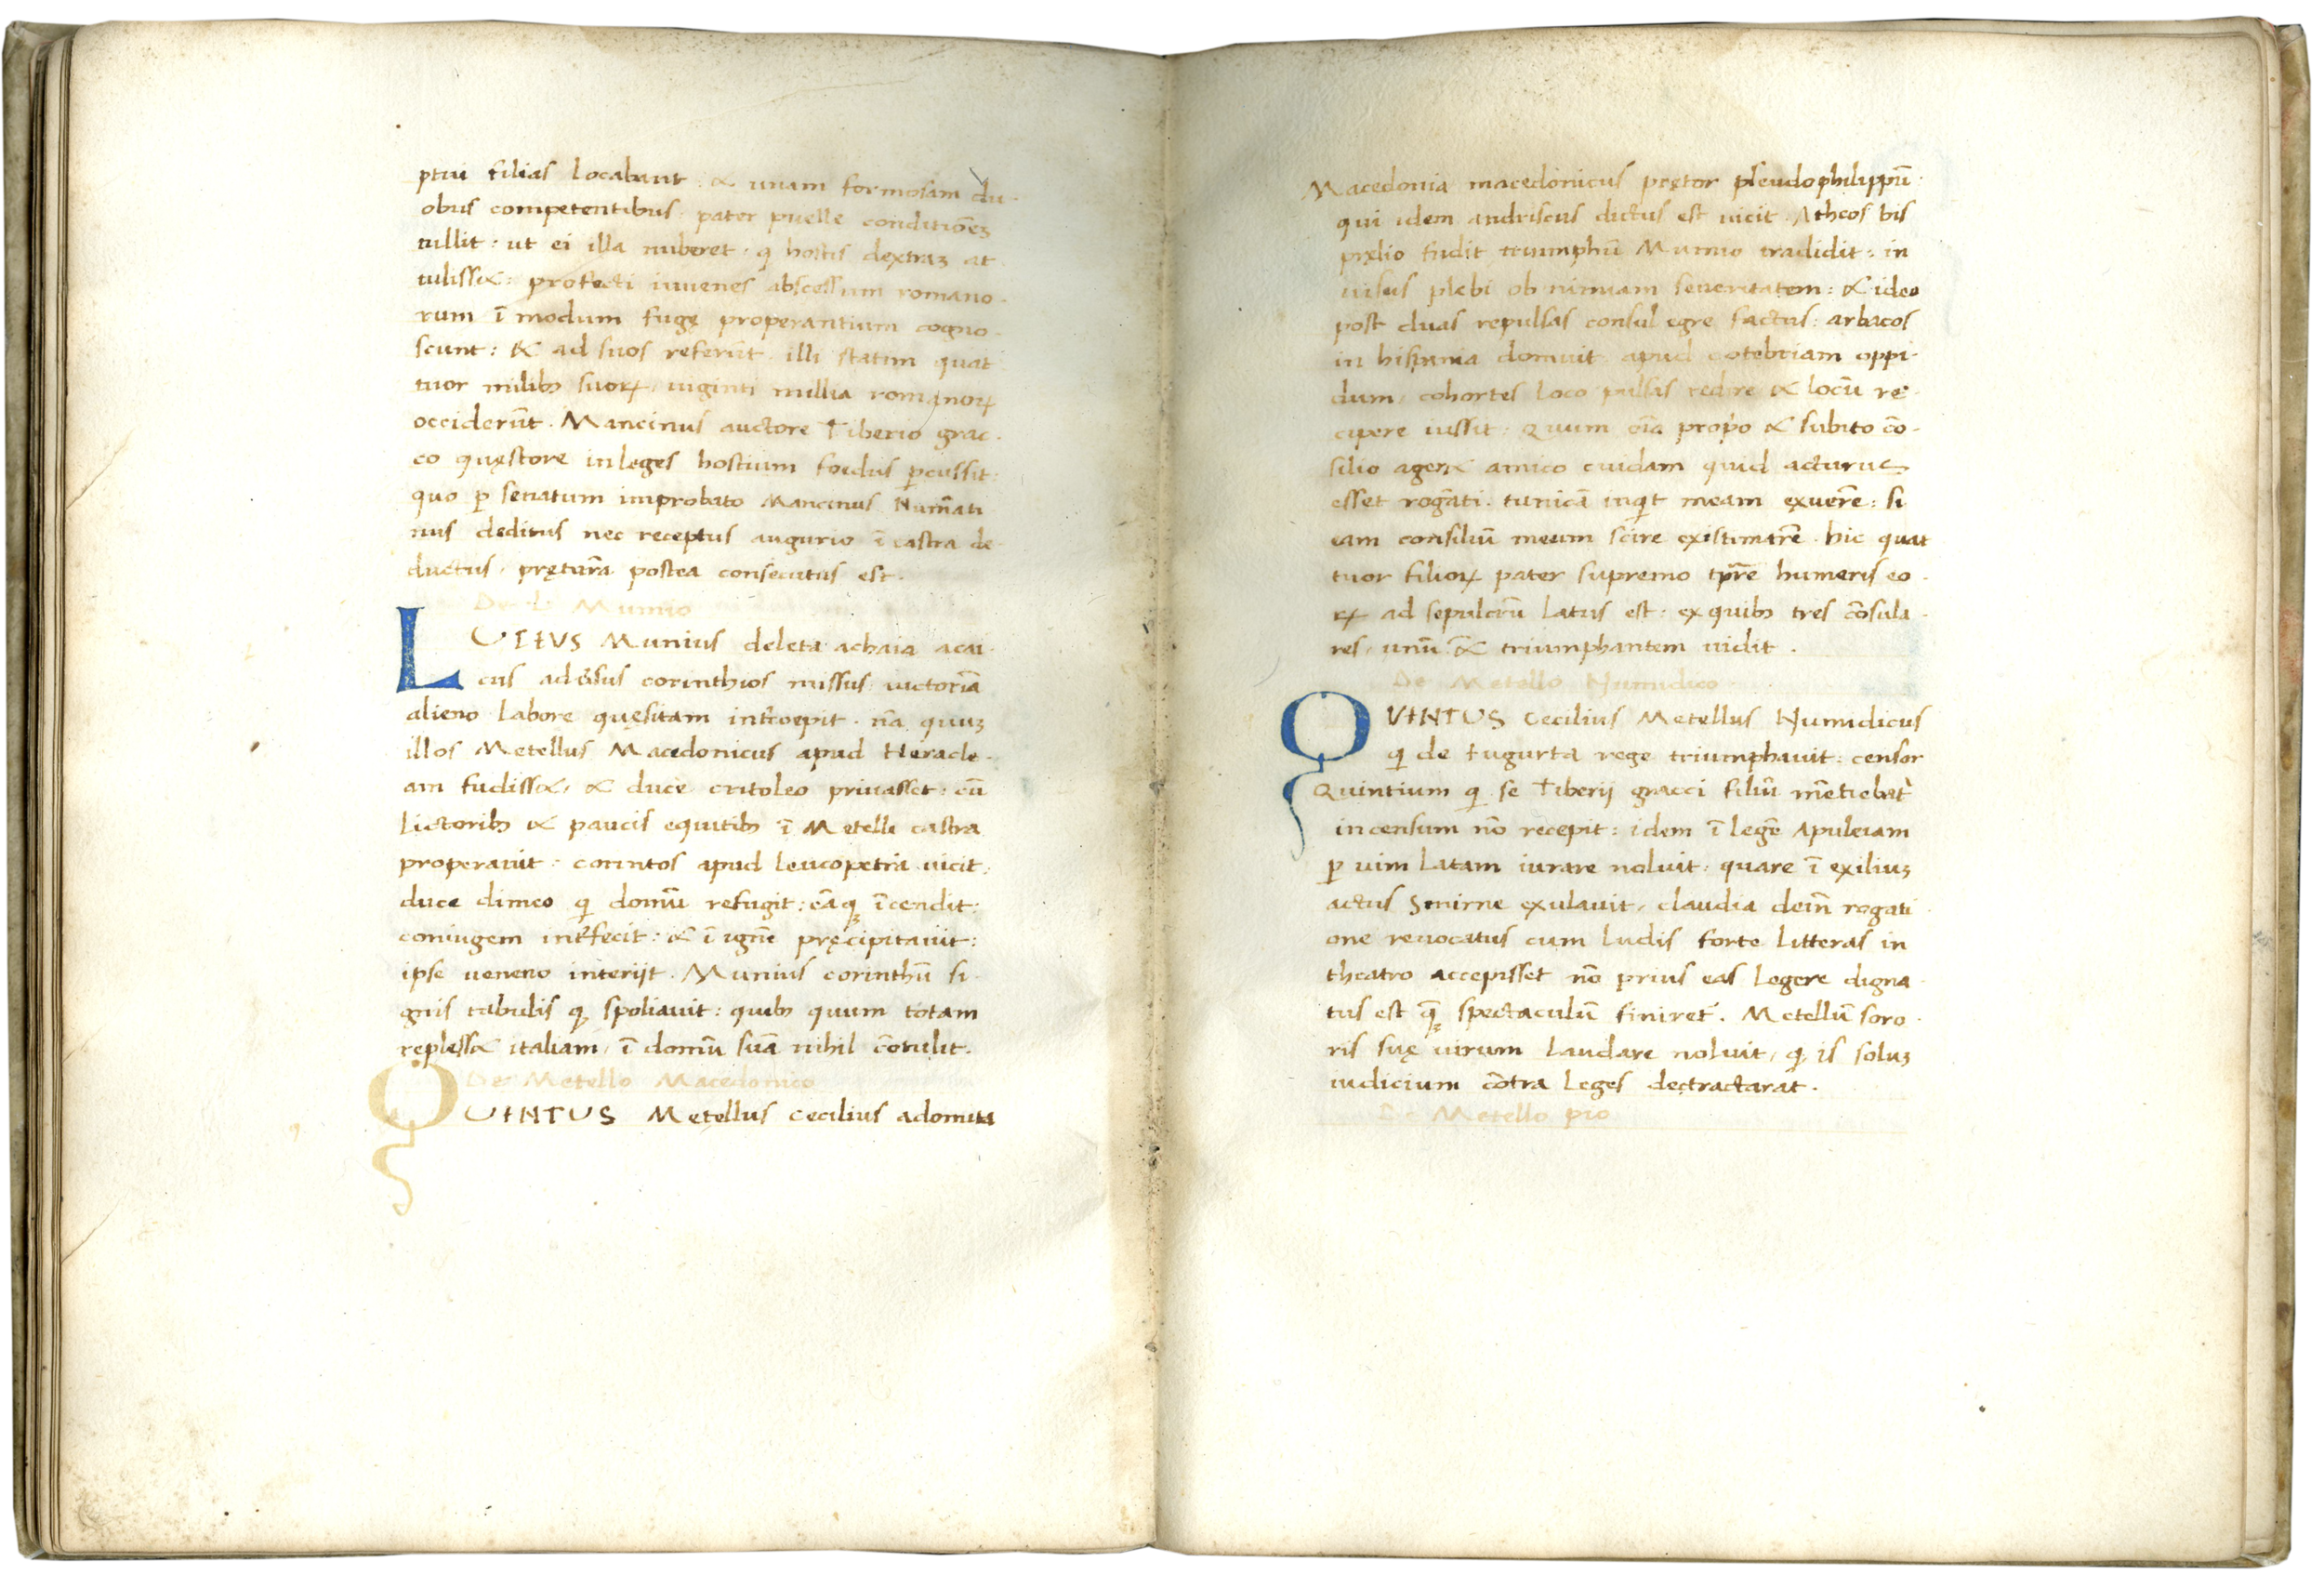 ptui filias locabant: & unam formosam du-
obus competentibus pater puelle conditiōeꝫ
tullit: ut ei illa nuberet · q hostis dextraꝫ at
tuliss&: profecti iuvenes abscessum romano-
rum ī modum fugę properantium cogno-
scunt: & ad suos referūt illi statim quat
tuor milibꝫ suoꝝ, viginti millia romanoꝝ
occiderūt. Mancinus auctore Tiberio grac-
co quęstore in leges hostium foedus ꝑcussit:
quo ꝑ senatum improbato Mancinus Numāti
nus deditus nec receptus augurio ī castra de-
ductus, pręturā postea consecutus est.
De L Mumio
LUTIUS Munius deleta achaia acai-
cus adūsus corinthios missus victoriā
alieno labore quęsitam intrcoepit. nā quuꝫ
illos Metellus Macedonicus apud Heracle-
am fudiss&, & duce critoleo privasset: cū
lictoribꝫ & paucis equitibꝫ ī Metelli castra
properavit: corintos apud leucopetrīa vicit,
duce dimeo qi domū refugit: eāqꝫ īcendit:
coniugem intrfecit: & ī ignē pręcipitavit:
ipse veneno interijt. Munius corinthū si-
gnis tabulis qꝫ spoliavit: quibꝫ quum totam
repless& italiam, ī domū suā nihil cōtulit.
De Metello Macedonico
QUINTUS Metellus Cecilius a domita
Macedonia macedonicus pretor pseudophilippū:
qui idem andriscus dictus est vicit. Atheos bis
pręlio fudit triumphū Mumio tradidit: in
visus plebi ob nimiam severitatem: & ideo
post duas repulsas consul egre factus: arbacos
in hispania domuit apud cotebriam oppi-
dum, cohortes loco pulsas redire & locū re-
cipere iussit: quum oīa propo & subito cō-
silio ager& amico cuidam quid acturus
esset rogāti. tunicā inqit meam exuerē: si
eam consiliū meum scire existimarē. hic quat
tuor filioꝝ pater supremo tprē humeris eo-
ꝝ ad sepulcrū latus est: ex quibꝫ tres cōsula-
res, unū & triumphantem vidit.
De Metello Numidico
QUINTUS Cecilius Metellus Numidicus
qi de Iugurta rege triumphavit: censor
Quintium qi se Tiberij gracci filiū mētiebat
in censum nō recepit: idem ī legē Apuleiam
ꝑ vim latam iurare noluit: quare ī exiliuꝫ
actus Smirne exulavit, claudia dein rogati
one revocatus cum ludis forte litteras in
theatro accepisset nō prius eas legere digna-
tus est q̄ꝫ spectaculū finiret. Metellū soro-
ris suę virum laudare noluit, qꝫ is soluꝫ
iudicium cōtra leges dectractarat.
De Metello pio